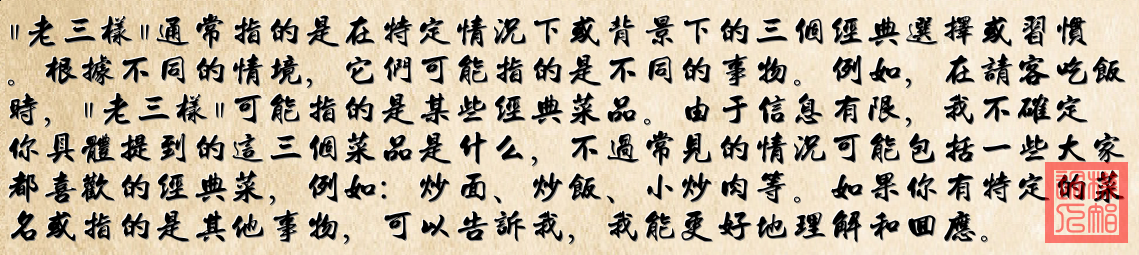 "老三樣"通常指的是在特定情況下或背景下的三個經典選擇或習慣
。根據不同的情境，它們可能指的是不同的事物。例如，在請客吃飯
時，"老三樣"可能指的是某些經典菜品。由于信息有限，我不確定
你具體提到的這三個菜品是什么，不過常見的情況可能包括一些大家
都喜歡的經典菜，例如：炒面、炒飯、小炒肉等。如果你有特定的菜
名或指的是其他事物，可以告訴我，我能更好地理解和回應。